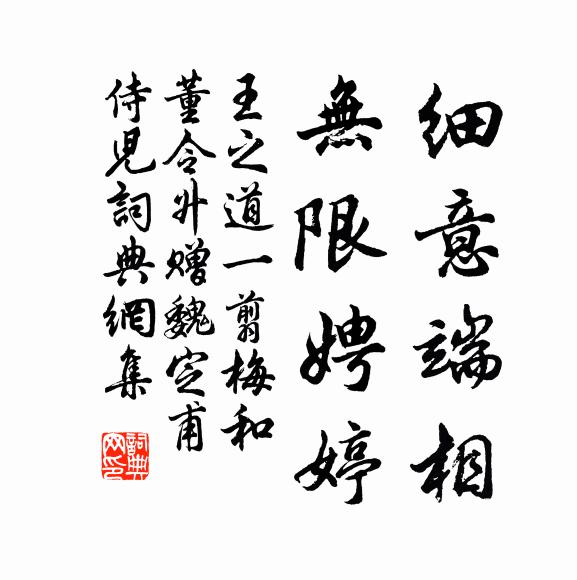 細意端相
無限娉婷
王之道一剪梅和
董令升贈魏定甫
侍児詞典網集
詞典网印